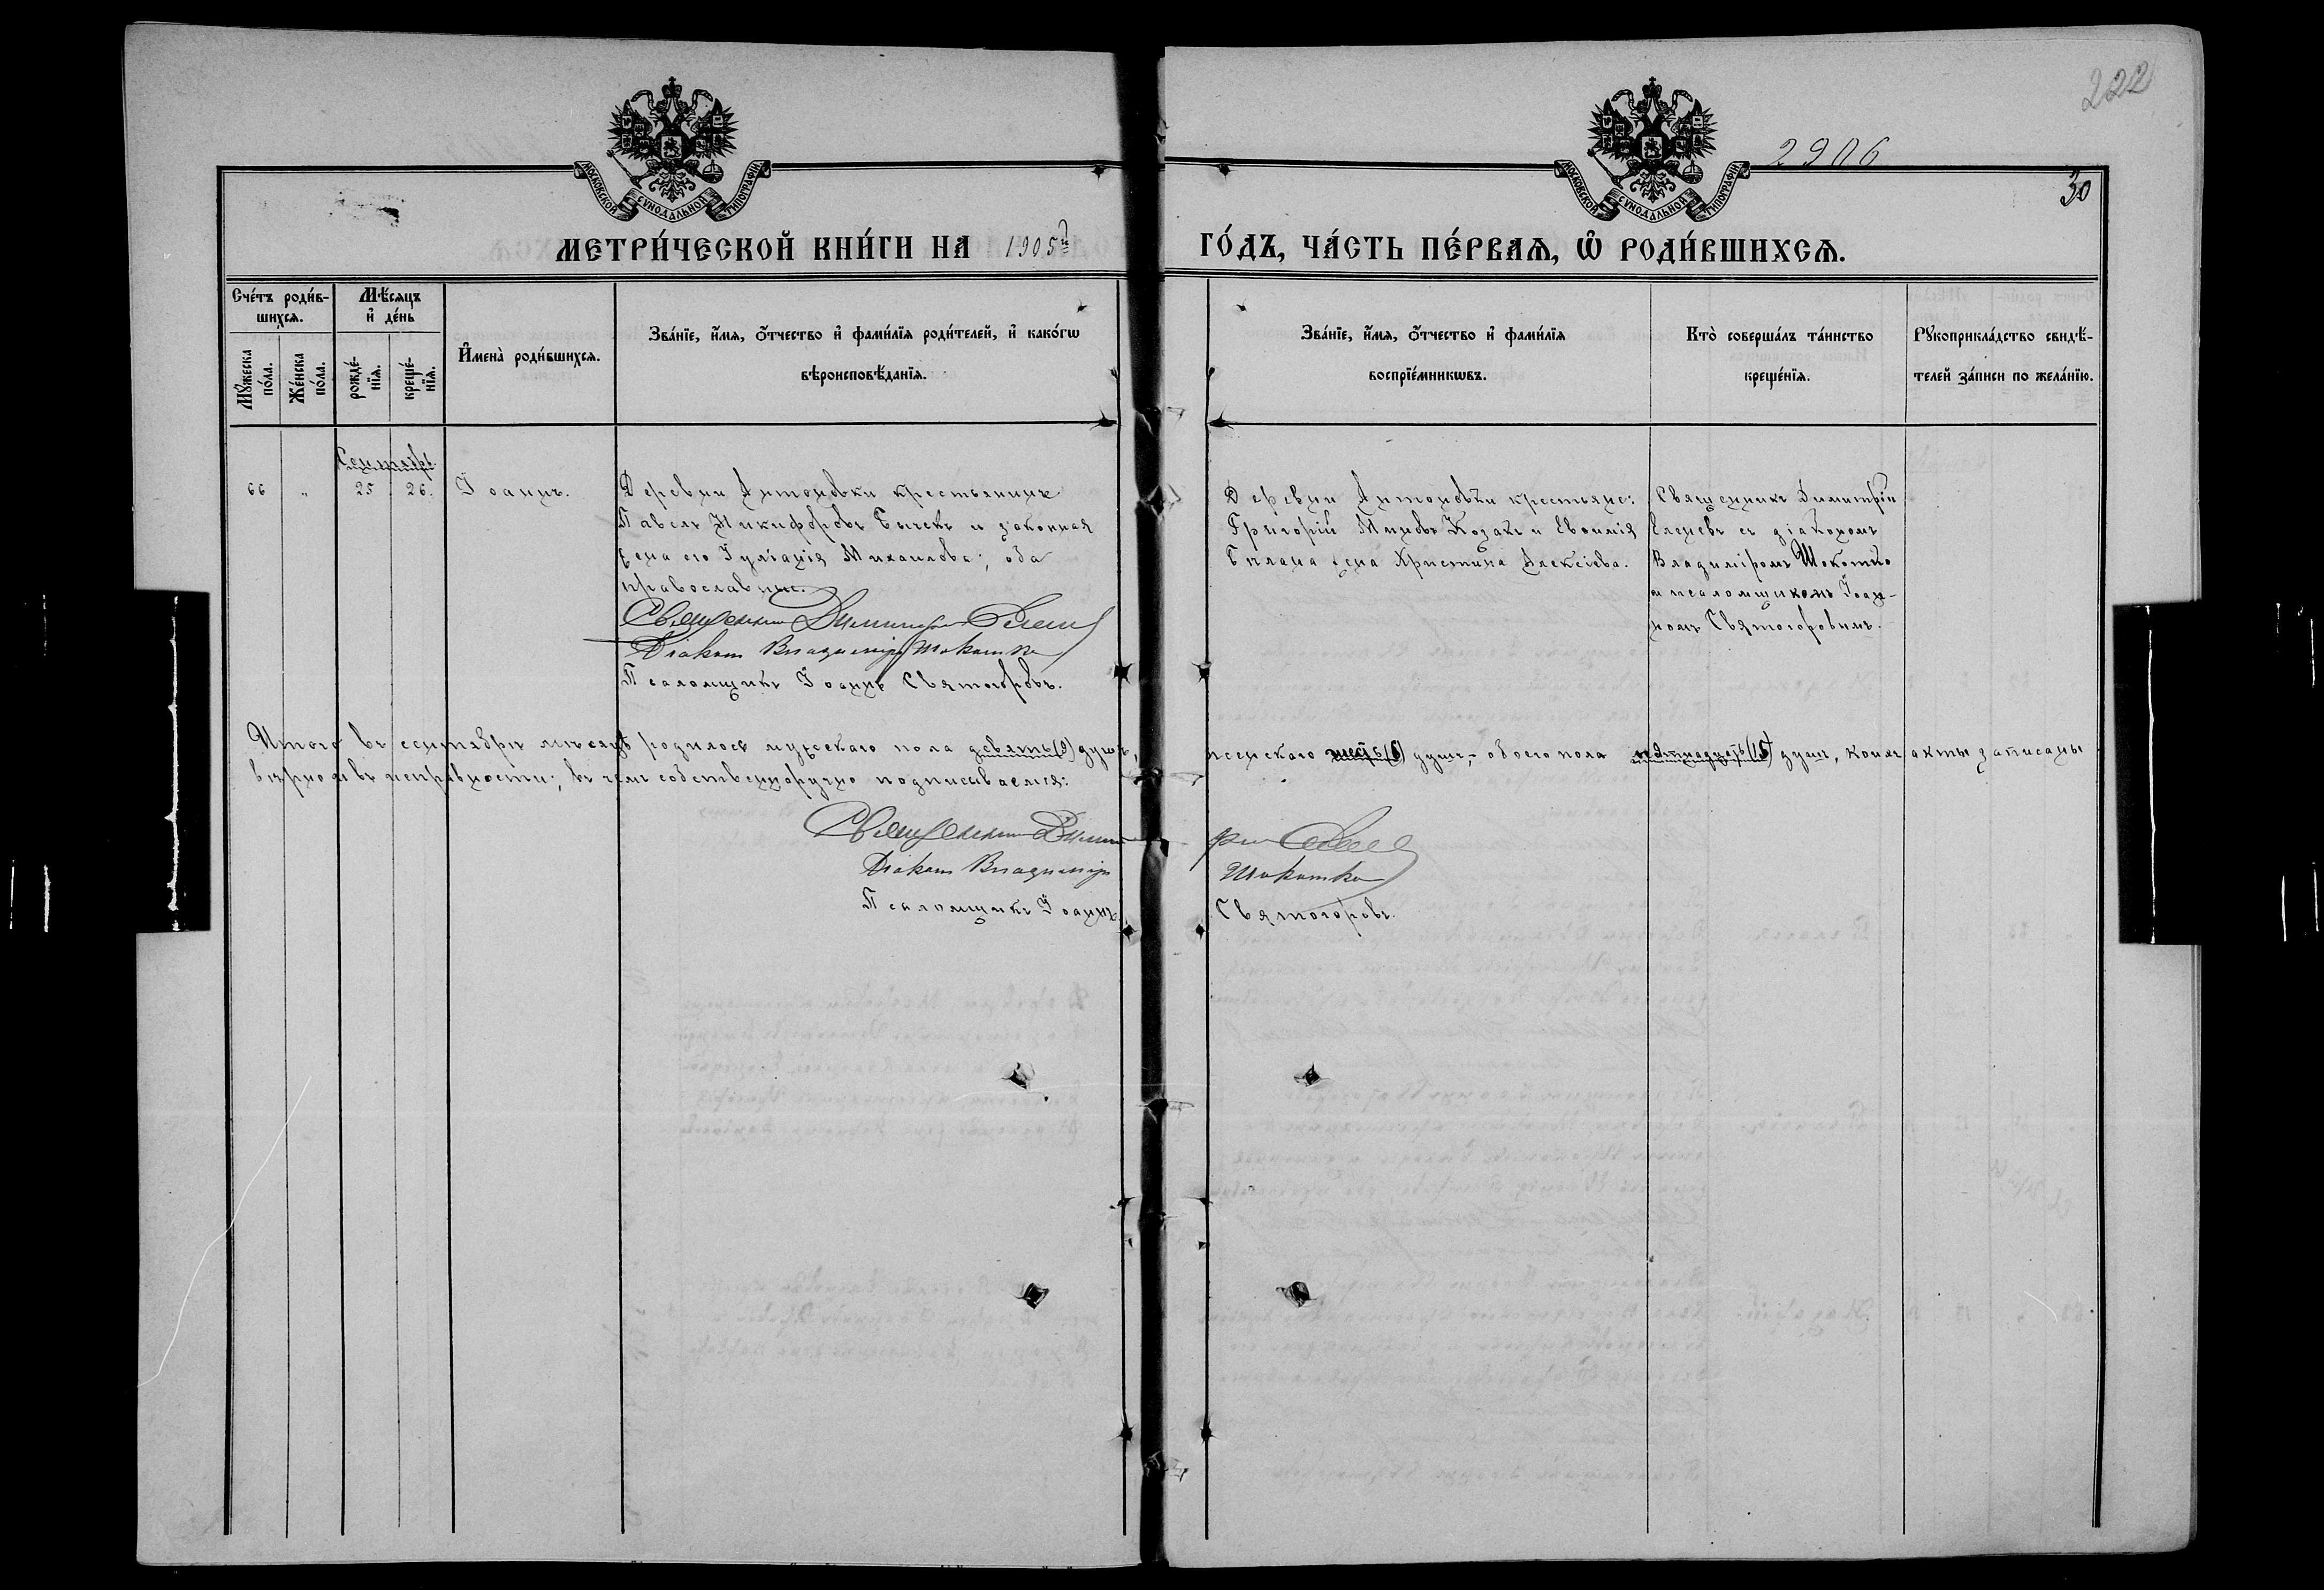 222
2906
30
МОСКОВСКОЙ СѴНОДАЛЬНОЙ ТИПОГРАФІИ
МОСКОВСКОЙ СѴНОДАЛЬНОЙ ТИПОГРАФІИ
МЕТРИ́ЧЕСКОЙ КНИ́ГИ НА 1905й ГО́ДЪ, ЧА́СТЬ ПЕ́РВАѦ, Ѡ РОДИ́ВШИХСѦ.
Сче́тъ роди́в-
шихсѧ.
Мꙋ́жеска
по́ла.
Же́нска
по́ла.
Мѣ́сѧцъ
и҆ де́нь
рожде́-
нїѧ.
креще́-
нїѧ.
И҆мена̀ роди́вшихсѧ.
Зва́нїе, и҆́мѧ, ѻ҆́тчество и҆ фами́лїѧ роди́телей, и҆ како́гѡ
вѣроисповѣ́данїѧ.
Зва́нїе, и҆́мѧ, ѻ҆́тчество и҆ фами́лїѧ
воспрїе́мникѡвъ.
Кто̀ соверша́лъ та́инство
креще́нїѧ.
Рꙋкоприкла́дство свидѣ́-
телей за́писи по жела́нїю.
Сентябрь
66 „ 25 26. Іоаннъ.
Деревни Антоновки крестьянинъ
Павелъ Никифоровъ Бычекъ и законная
жена его Іуліанія Михаилова; оба
православные.
Священникъ Димитрій
Діаконъ Владиміръ Шокотко
Псаломщикъ Іоаннъ Святогоровъ.
Деревни Антоновки крестьяне:
Григорій Миновъ Козакъ и Евѳимія
жена Христина Алексіева.
Священникъ Димитрій
съ діакономъ
Владиміромъ Шокотко
и псаломщикомъ Іоан-
номъ Святогоровымъ.
Итого въ сентябрѣ мѣсяцѣ родилось мужскаго пола девять (9) душъ, женскаго шесть (6) душъ,- обоего пола пятнадцать (15) душъ, коихъ акты записаны
вѣрно и въ исправности; въ чемъ собственноручно подписываемся:
Священникъ Димитрій
Діаконъ Владиміръ Шокотко
Псаломщикъ Іоаннъ Святогоровъ.